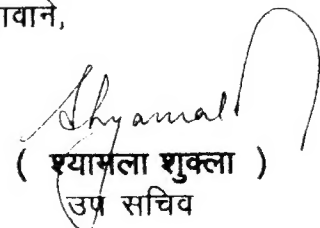 ावाने,
Shyamal
( श्यामला शुक्ला )
उप सचिव